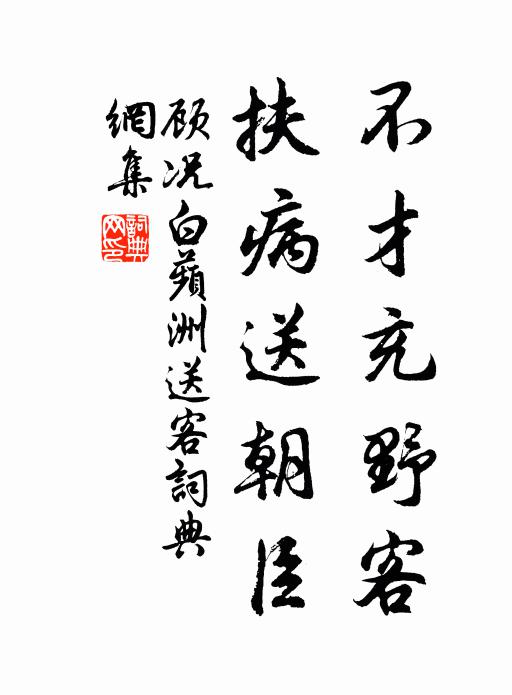 不才充野客
扶病送朝臣
顾况白蘋洲送客詞典
網集
詞典
网印